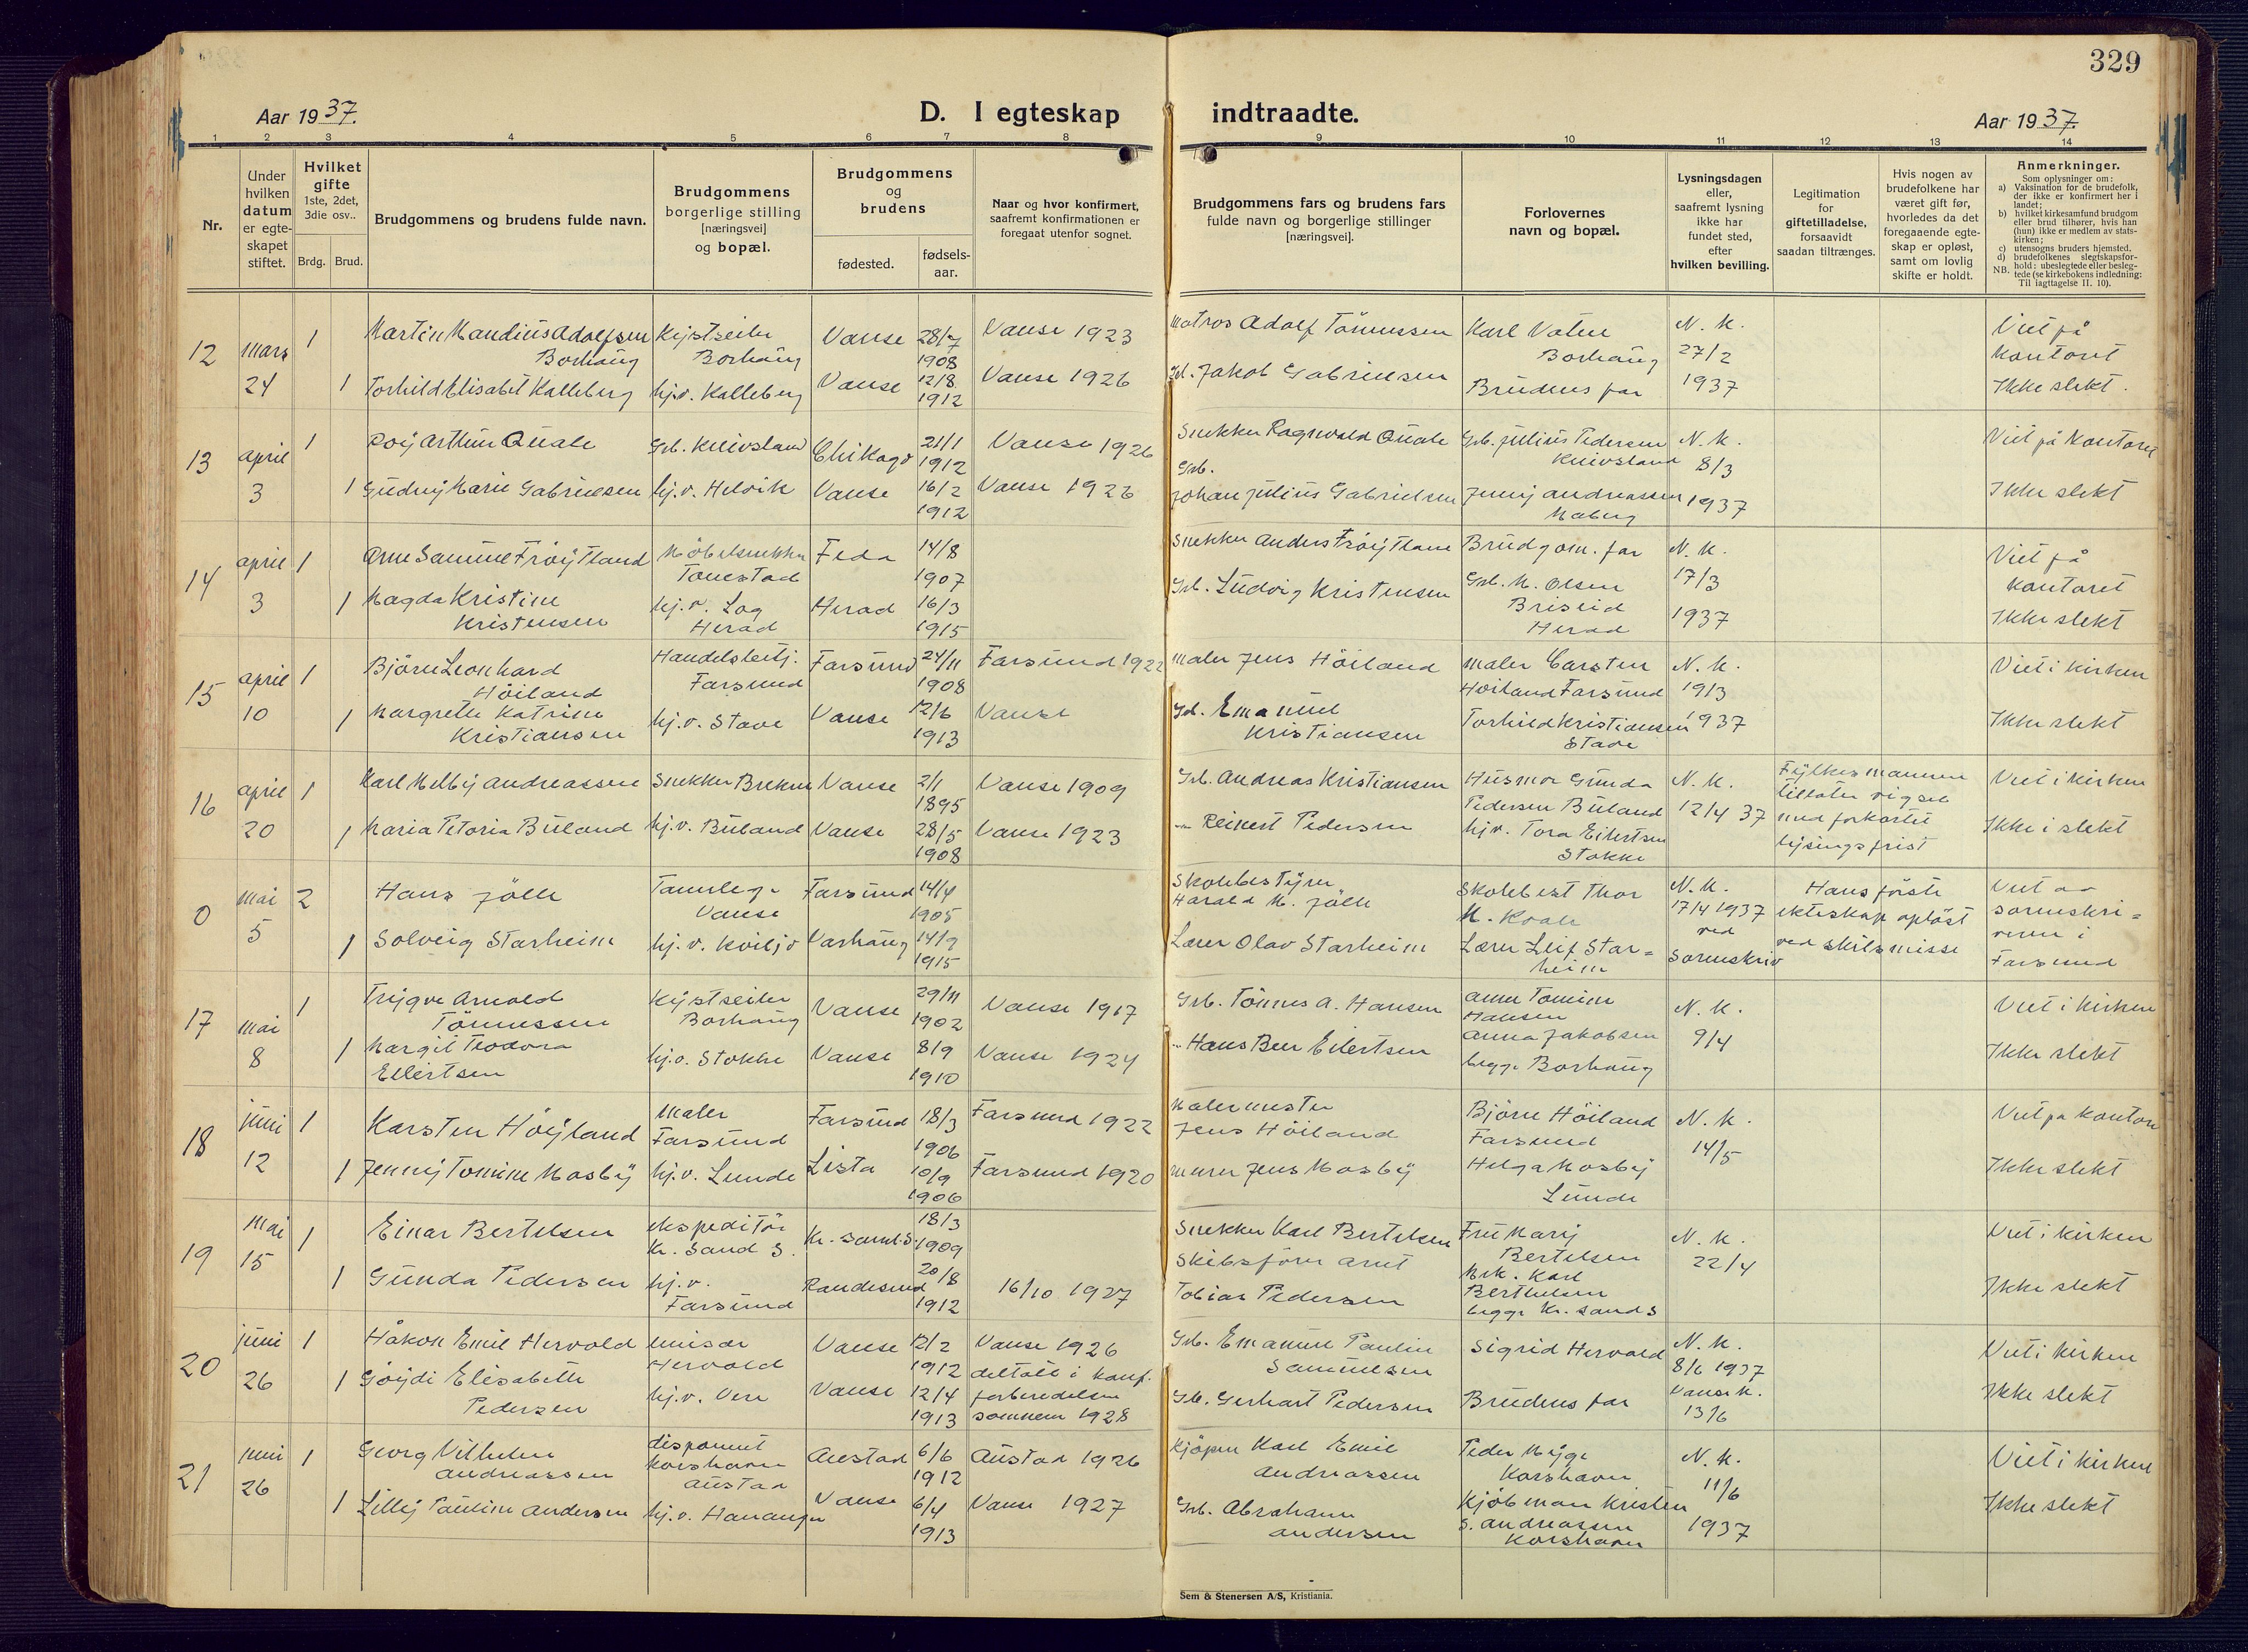 329
Aar 1937.
D. I egteskap indtraadte.
Aar 1937.
1 2 3 4 5 6 7 8 9 10 11 12 13 14
Nr.
Under hvilken datum er egte-skapet stiftet.
Hvilket gifte 1ste, 2det, 3die osv..
Brdg. Brud.
Brudgommens og brudens fulde navn.
Brudgommens borgerlige stilling [næringsvei] og bopæl.
Brudgommens og brudens
fødested.
fødsels-aar.
Naar og hvor konfirmert, saafremt konfirmationen er foregaat utenfor sognet.
Brudgommens fars og brudens fars fulde navn og borgerlige stillinger [næringsvei].
Forlovernes navn og bopæl.
Lysningsdagen eller, saafremt lysning ikke har fundet sted, efter hvilken bevilling.
Legitimation for giftetilladelse, forsaavidt saadan tiltrænges.
Hvis nogen av brudefolkene har været gift før, hvorledes da det foregaaende egte-skap er opløst, samt om lovlig skifte er holdt.
Anmerkninger.
Som oplysninger om:
a) Vaksination for de brudefolk, der ikke er konfirmert her i landet;
b) hvilket kirkesamfund brudgom eller brud tilhører, hvis han (hun) ikke er medlem av stats-kirken;
c) utensogns bruders hjemsted.
d) brudefolkenes slegtskapsfor-hold: ubeslegtede eller besleg-tede (se kirkebokens indledning:
NB. Til iagttagelse II. 10).
12 mars 1 Martin Mandius Adolfsen Kystseiler Vanse 28/7 Vanse 1923 Matros Adolf Tönnessen Karl Vatne N. K. Viet på
Borhaug Borhaug 1908 Borhaug 27/2 kontoret
24 1 Torhild Elisabet Kalleberg hj.v. Kalleberg Vanse 12/8 1912 Vanse 1926 Gd. Jakob Gabrielsen Brudens far 1937 Ikke slekt.
13 april 1 Roy Arthur Quale Grb. Knivsland Chikago 21/1 1912 Vanse 1926 Snekker Ragnvald Quale Grb. Julius Pedersen N. K. Viet på kontoret
Grb. Knivsland 8/3
3 1 Gudny Marie Gabrielsen hj.v. Helvik Vanse 16/2 1912 Vanse 1926 Johan Julius Gabrielsen Jenny Andreassen 1937 Ikke slekt
Maberg
14 april 1 Arne Samuel Fröytland Möbelsnekker Feda 14/8 Snekker Anders Fröytland Brudgom. far N. K. Viet på
Tonestad 1907 17/3 kontoret
3 1 Magda Kristine hj.v. Log Herad 16/3 Grb. Ludvig Kristensen Grb. M. Olsen 1937 Ikke slekt
Kristensen Herad 1915 Briseid Herad
15 april 1 Björn Leonhard Handelsbetj. Farsund 24/11 Farsund 1922 Maler Jens Höiland Maler Carsten N. K. Viet i kirken
Höiland Farsund 1908 Höiland Farsund 19/3
10 1 Margrethe Katrine hj.v. Stave Vanse 12/6 Vanse Gd. Emanuel Torhild Kristiansen 1937 Ikke slekt
Kristiansen 1913 Kristiansen Stave
16 april 1 Karl Melby Andreassen Snekker Brekne Vanse 2/1 1895 Vanse 1909 Grb. Andreas Kristiansen Husmor Gunda N. K. Fylkesmannen Viet i kirken
Pedersen Buland 12/4 37 tillater vigsel
20 1 Maria Petoria Buland hj.v. Buland Vanse 28/5 1908 Vanse 1923 " Reinert Pedersen hjv. Tora Eilertsen med forkortet Ikke i slekt
Stokke lysingsfrist
0 mai 2 Hans Jölle Tannlege Farsund 14/4 Skolebestyrer Skolebest Thor N. K. Hans förste Viet av
Vanse 1905 Harald M. Jölle M. Kvale 17/4 1937 ekteskap oplöst sorenskri=
5 1 Solveig Starheim hj.v. Kviljo Varhaug 14/9 Lærer Olav Starheim Lærer Leif Star= ved ved skilsmisse veren i
1915 heim Sorenskriv Farsund
17 mai 1 Trygve Arnold Kystseiler Vanse 29/11 Vanse 1917 Grb. Tönnes A. Hansen Anne Tomine N. K. Viet i kirken
Tönnessen Borhaug 1902 Hansen
8 1 Margit Teodora hj.v. Stokke Vanse 8/9 Vanse 1924 " Hans Beer Eilertsen Anna Jakobsen 9/4 Ikke slekt
Eilertsen 1910 begge Borhaug
18 juni 1 Karsten Höyland Maler Farsund 18/3 Farsund 1922 Malermester Björn Höiland N. K. Viet på kontor
Farsund 1906 Jens Höiland Farsund 14/5
12 1 Jenny Tomine Mosby hj.v. Lunde Lista 10/9 Farsund 1920 murer Jens Mosby Helga Mosby Ikke slekt
1906 Lunde
19 mai 1 Einar Bertelsen ekspeditör Kr. sand S. 18/3 Snekker Karl Bertelsen Fru Mary N. K. Viet i kirken
15 Kr. Sand S. 1909 Skibsförer Bertelsen 22/4
1 Gunda Pedersen hj.v. Randesund 20/8 16/10 1927 Tobias Pedersen Karl Berthelsen Ikke slekt
Farsund 1912 begge Kr. sand S
20 juni 1 Håkon Emil Hervold Vanse 12/2 Vanse 1926 Grb. Emanuel Paulin Sigrid Hervold N. K. Viet i kirken
Hervold 1912 deltatt i konf. Samuelsen 8/6 1937
26 1 Göydi Elisabeth hj.v. Vere Vanse 12/4 forberedelsen Gb. Gerhart Pedersen Brudens far Vanse K. Ikke slekt
Pedersen 1913 sommeren 1928 13/6
21 juni 1 Georg Vilhelm disponent Austad 6/6 Austad 1926 Kjöpm Karl Emil Peder Myge N. K. Viet i kirken
26 Andreassen Korshavn Austad 1912 Andreassen Korshavn 11/6
1 Lilly Pauline Andersen hj.v. Hananger Vanse 6/4 Vanse 1927 Grb. Abraham Kjöbman Kristen 1937 Ikke slekt
1913 Andersen S. Andreassen Korshavn
Sem & Stenersen A/S, Kristiania.